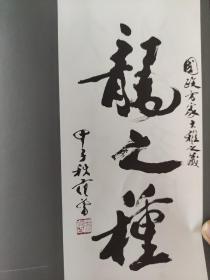 國政方家大雅之藏
龍之種
甲子秋范曾